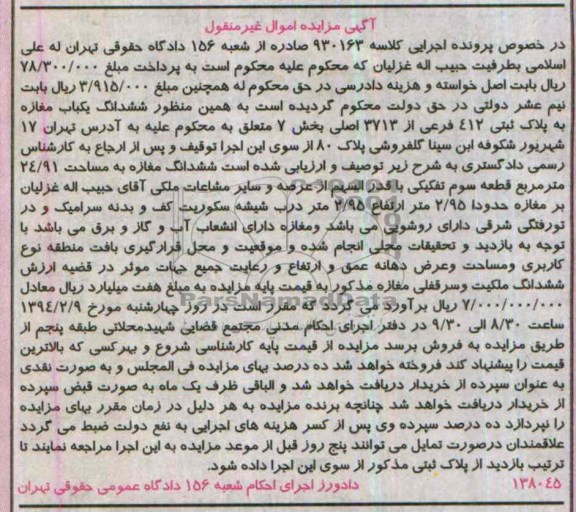 آگهی مزایده اموال غیرمنقول
در خصوص پرونده اجرایی کلاسه ۹۳۰۱۶۳ صادره از شعبه ۱۵۶ دادگاه حقوقی تهران له علی
اسلامی بطرفیت حبیب اله غزلیان که محکوم علیه محکوم است به پرداخت مبلغ ۷۸/۳۰۰/۰۰۰
ریال بابت اصل خواسته و هزینه دادرسی در حق محکوم له همچنین مبلغ ۳/۹۱۵/۰۰۰ ریال بابت
نیم عشر دولتی در حق دولت محکوم گردیده است به همین منظور ششدانگ یکباب مغازه
به پلاک ثبتی ٤۱۲ فرعی از ۳۷۱۳ اصلی بخش ۷ متعلق به محکوم علیه به آدرس تهران ۱۷
شهریور شکوفه ابن سینا گلفروشی پلاک ۸۰ از سوی این اجرا توقیف و پس از ارجاع به کارشناس
رسمی دادگستری به شرح زیر توصیف و ارزیابی شده است ششدانگ مغازه به مساحت ۲٤/۹۱
مترمربع قطعه سوم تفکیکی با قدر السهم از عرصه و سایر مشاعات ملکی آقای حبیب اله غزلیان
بر مغازه حدودا ۲/۹۵ متر ارتفاع ۳/۹۵ متر درب شیشه سکوریت کف و بدنه سرامیک و در
تورفتگی شرقی دارای روشویی می باشد ومغازه دارای انشعاب آب و گاز و برق می باشد با
توجه به بازدید و تحقیقات محلی انجام شده و موقعیت و محل قرارگیری بافت منطقه نوع
کاربری ومساحت وعرض دهانه عمق و ارتفاع و رعایت جمیع جهات موثر در قضیه ارزش
ششدانگ ملکیت وسرقفلی مغازه مذکور به قیمت پایه مزایده به مبلغ هفت میلیارد ریال معادل
۷/۰۰۰/۰۰۰/۰۰۰ ریال برآورد می گردد که مقرر است در روز چهارشنبه مورخ ۱۳۹٤/۲/۹
ساعت ۸/۳۰ الی ۹/۳۰ در دفتر اجرای احکام مدنی مجتمع قضایی شهیدمحلاتی طبقه پنجم از
طریق مزایده به فروش برسد مزایده از قیمت پایه کارشناسی شروع و بهرکسی که بالاترین
قیمت را پیشنهاد کند فروخته خواهد شد ده درصد بهای مزایده فی المجلس و به صورت نقدی
به عنوان سپرده از خریدار دریافت خواهد شد و الباقی ظرف یک ماه به صورت قبض سپرده
از خریدار دریافت خواهد شد چنانچه برنده مزایده به هر دلیل در زمان مقرر بهای مزایده
را نپردازد ده درصد سپرده وی پس از کسر هزینه های اجرایی به نفع دولت ضبط می گردد
علاقمندان درصورت تمایل می توانند پنج روز قبل از موعد مزایده به این اجرا مراجعه نمایند تا
ترتیب بازدید از پلاک ثبتی مذکور از سوی این اجرا داده شود.
۱۳۸۰٤۵ دادورز اجرای احکام شعبه ۱۵۶ دادگاه عمومی حقوقی تهران
ParsNamadData